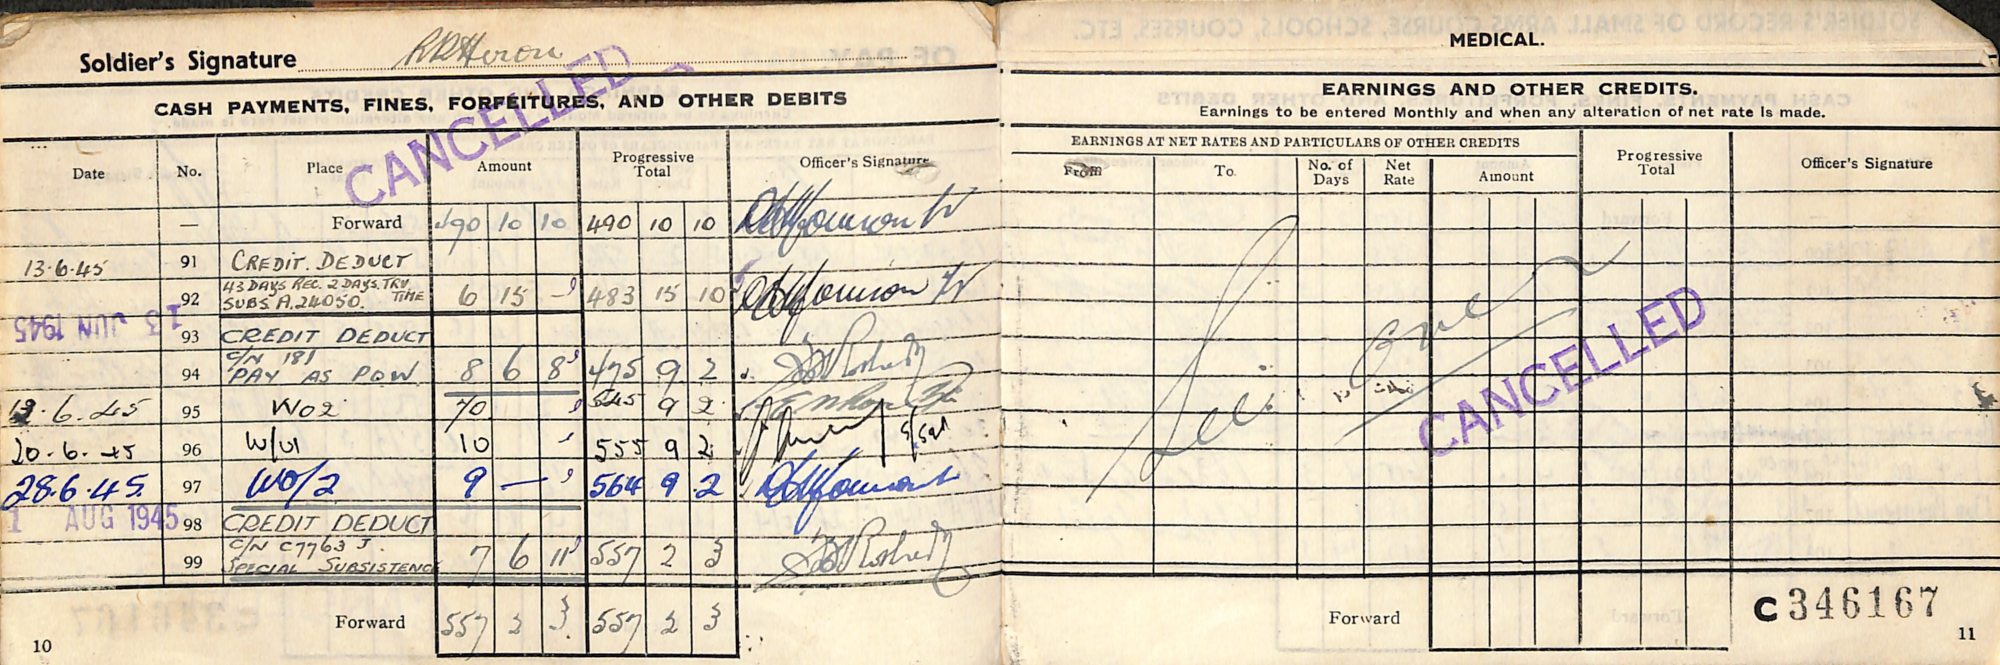 Soldier's Signature R R Heron
CASH PAYMENTS, FINES, FORFEITURES, AND OTHER DEBITS
CANCELLED
Date No. Place Amount Progressive Total Officer's Signature
— Forward 490 10 10 490 10 10
13.6.45 91 CREDIT. DEDUCT
92 43 DAYS REC. 2 DAYS. TRV. TIME
SUBS A.24050. 6 15 — 483 15 10
13 JUN 1945
93 CREDIT DEDUCT
C/N 181
94 PAY AS POW. 8 6 8 475 9 2
13.6.45 95 WO2 70 545 9 2
20.6.45 96 W/O1 10 555 9 2 S/Sgt
28.6.45. 97 WO/2 9 — 564 9.2
1 AUG 1945 98 CREDIT DEDUCT
C/N C7763 J.
99 SPECIAL SUBSISTENCE 7 6 11 557 2 3
Forward 557 2 3 557 2 3
10
MEDICAL.
EARNINGS AND OTHER CREDITS.
Earnings to be entered Monthly and when any alteration of net rate is made.
EARNINGS AT NET RATES AND PARTICULARS OF OTHER CREDITS
From To. No. of Days Net Rate Amount Progressive Total Officer's Signature
CANCELLED
Forward
C346167
11